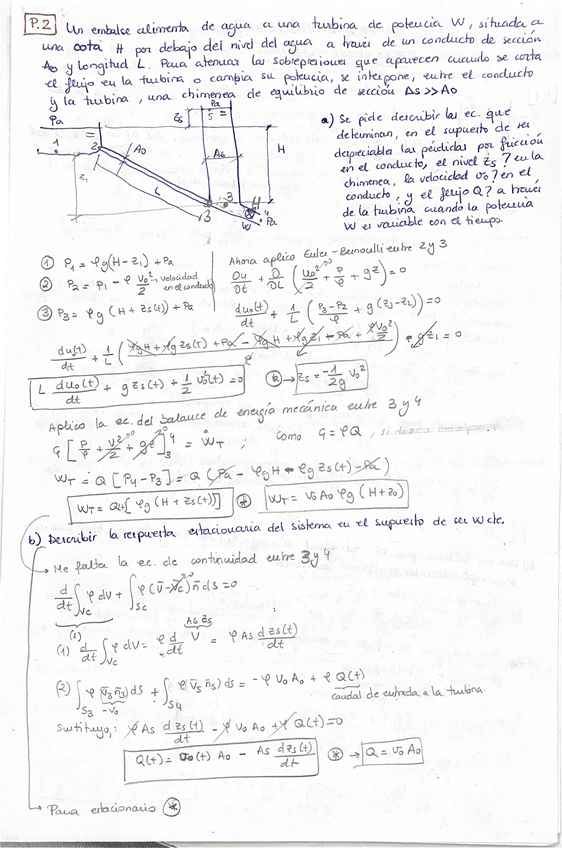 P.2 Un embalse alimenta de agua a una turbina de potencia W, situada a
una cota H por debajo del nivel del agua a través de un conducto de sección
A₀ y longitud L. Para atenuar las sobrepresiones que aparecen cuando se corta
el flujo en la turbina o cambia su potencia, se interpone, entre el conducto
y la turbina, una chimenea de equilibrio de sección As >> A₀
a) Se pide describir las ec. que
determinan, en el supuesto de ser
despreciables las pérdidas por fricción
en el conducto, el nivel zs? en la
chimenea, la velocidad v₀? en el
conducto, y el flujo Q? a través
de la turbina cuando la potencia
W es variable con el tiempo.
Pa
Pa
zs
5
1
2
A₀
As
H
z₁
L
3
3
4
Pa
W
① P₁ = ρg(H-z₁) + Pa
② P₂ = P₁ - ρ v₀²/2 → velocidad en el conducto
③ P₃ = ρg (H + zs(t)) + Pa
Ahora aplico Euler-Bernoulli entre 2 y 3
∂u/∂t + ∂/∂L (u₀²/2 + P/ρ + gz) = 0
du₀(t)/dt + 1/L (P₃-P₂/ρ + g(z₃-z₂)) = 0
du(t)/dt + 1/L (ρgH + ρg zs(t) + Pa - ρgH + ρgz₁ - Pa + ρv₀²/2) - gz₁ = 0
L du₀(t)/dt + g zs(t) + 1/2 v₀²(t) = 0
* → zs = -1/2g v₀²
Aplico la ec. del balance de energía mecánica entre 3 y 4
G [P/ρ + v²/2 + gz]₃⁴ = ẆT ; como G = ρQ,
WT = Q [P₄ - P₃] = Q (Pa - ρgH - ρg zs(t) - Pa)
* WT = v₀ A₀ ρg (H + z₀)
b) Describir la respuesta estacionaria del sistema en el supuesto de ser W cte.
→ Me falta la ec. de continuidad entre 3 y 4
d/dt ∫Vc ρ dV + ∫Sc ρ (v̄ - v̄c) n̄ ds = 0
(1)
As zs
(1) d/dt ∫Vc ρ dV = ρ d/dt V = ρ As d zs(t)/dt
(2) ∫S₃ ρ (v̄₃ n̄₃) ds + ∫S₄ ρ (v̄₅ n̄₅) ds = -ρ v₀ A₀ + ρ Q(t)
-v₀
caudal de entrada a la turbina.
sustituyo: ρ As d zs(t)/dt - ρ v₀ A₀ + ρ Q(t) = 0
Q(t) = v₀(t) A₀ - As d zs(t)/dt
* → Q = v₀ A₀
→ Para estacionario *